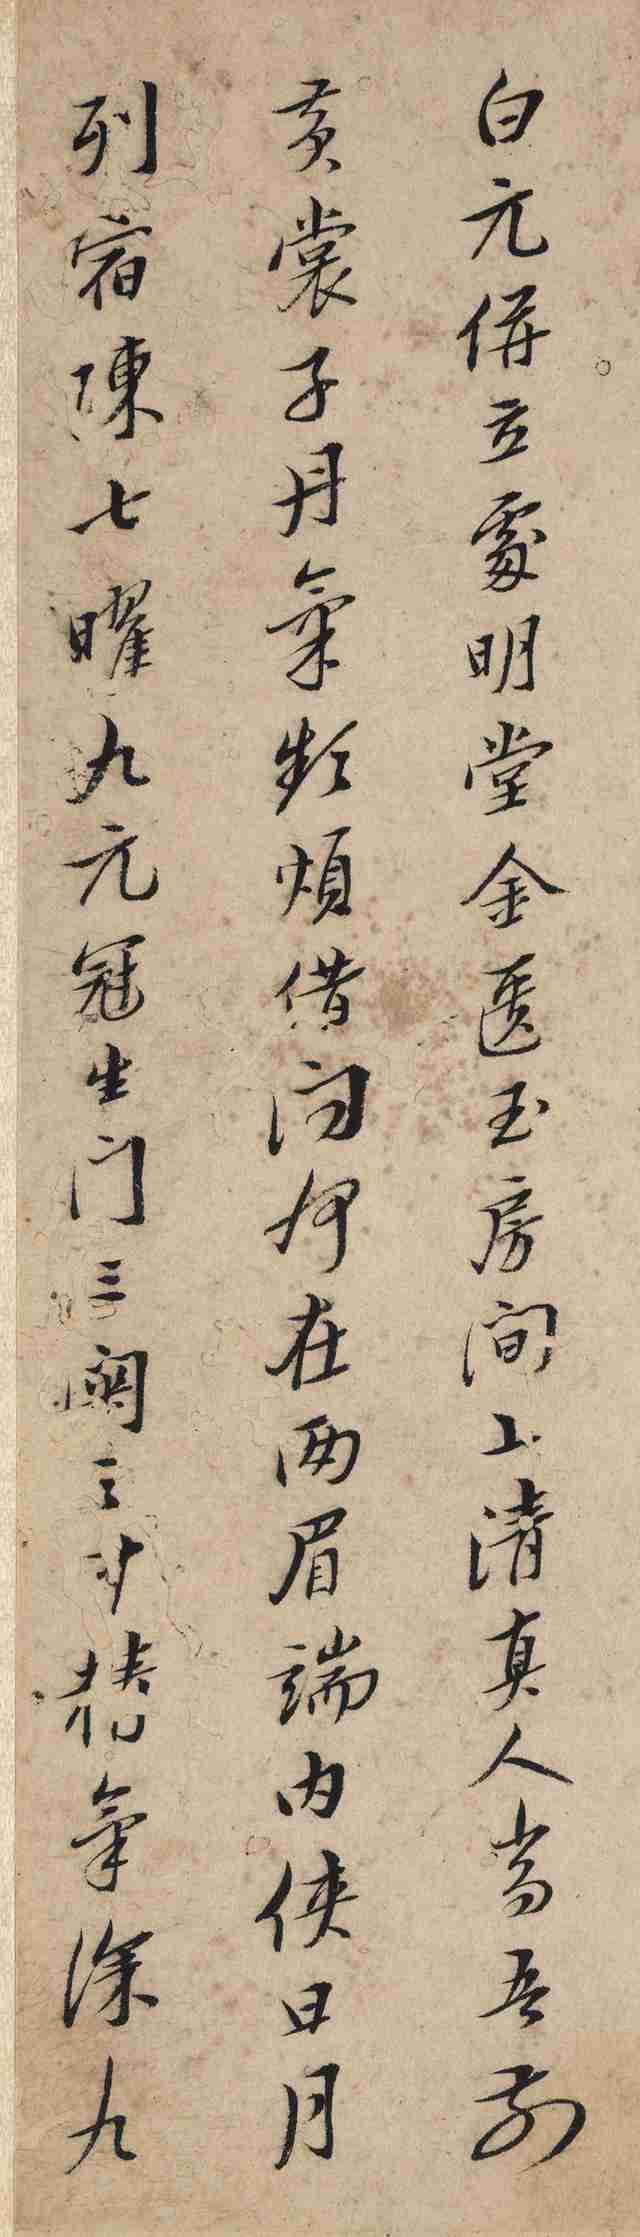 白元併立處明堂金匱玉房間上清真人當吾前
黃裳子丹氣頻煩借問何在兩眉端內俠日月
列宿陳七曜九元冠生門三關之中精氣深九